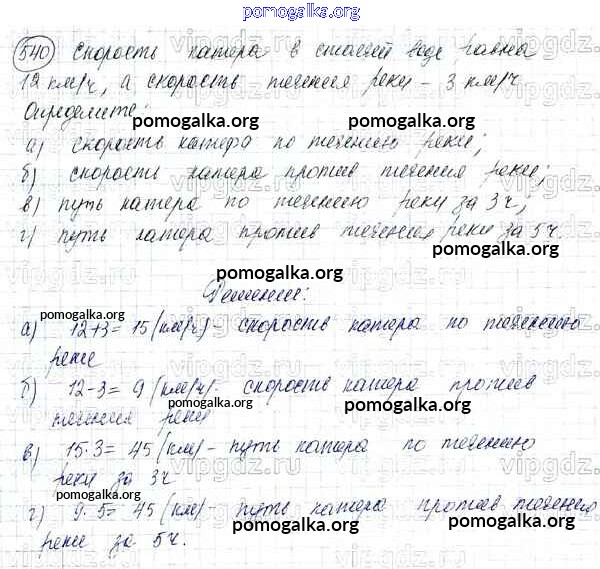 pomogalka.org
540 Скорость катера в стоячей воде равна
12 км/ч, а скорость течения реки - 3 км/ч
Определите:
pomogalka.org pomogalka.org
а) скорость катера по течению реки;
б) скорость катера против течения реки;
в) путь катера по течению реки за 3ч;
г) путь катера против течения реки за 5ч.
pomogalka.org pomogalka.org
Решение:
pomogalka.org pomogalka.org
а) 12+3= 15 (км/ч) - скорость катера по течению
реке
б) 12-3= 9 (км/ч)- скорость катера против
pomogalka.org pomogalka.org
течения реки
в) 15·3= 45 (км) - путь катера по течению
реки за 3ч
pomogalka.org pomogalka.org
г) 9·5= 45 (км) - путь катера против течению
pomogalka.org pomogalka.org
реке за 5ч.